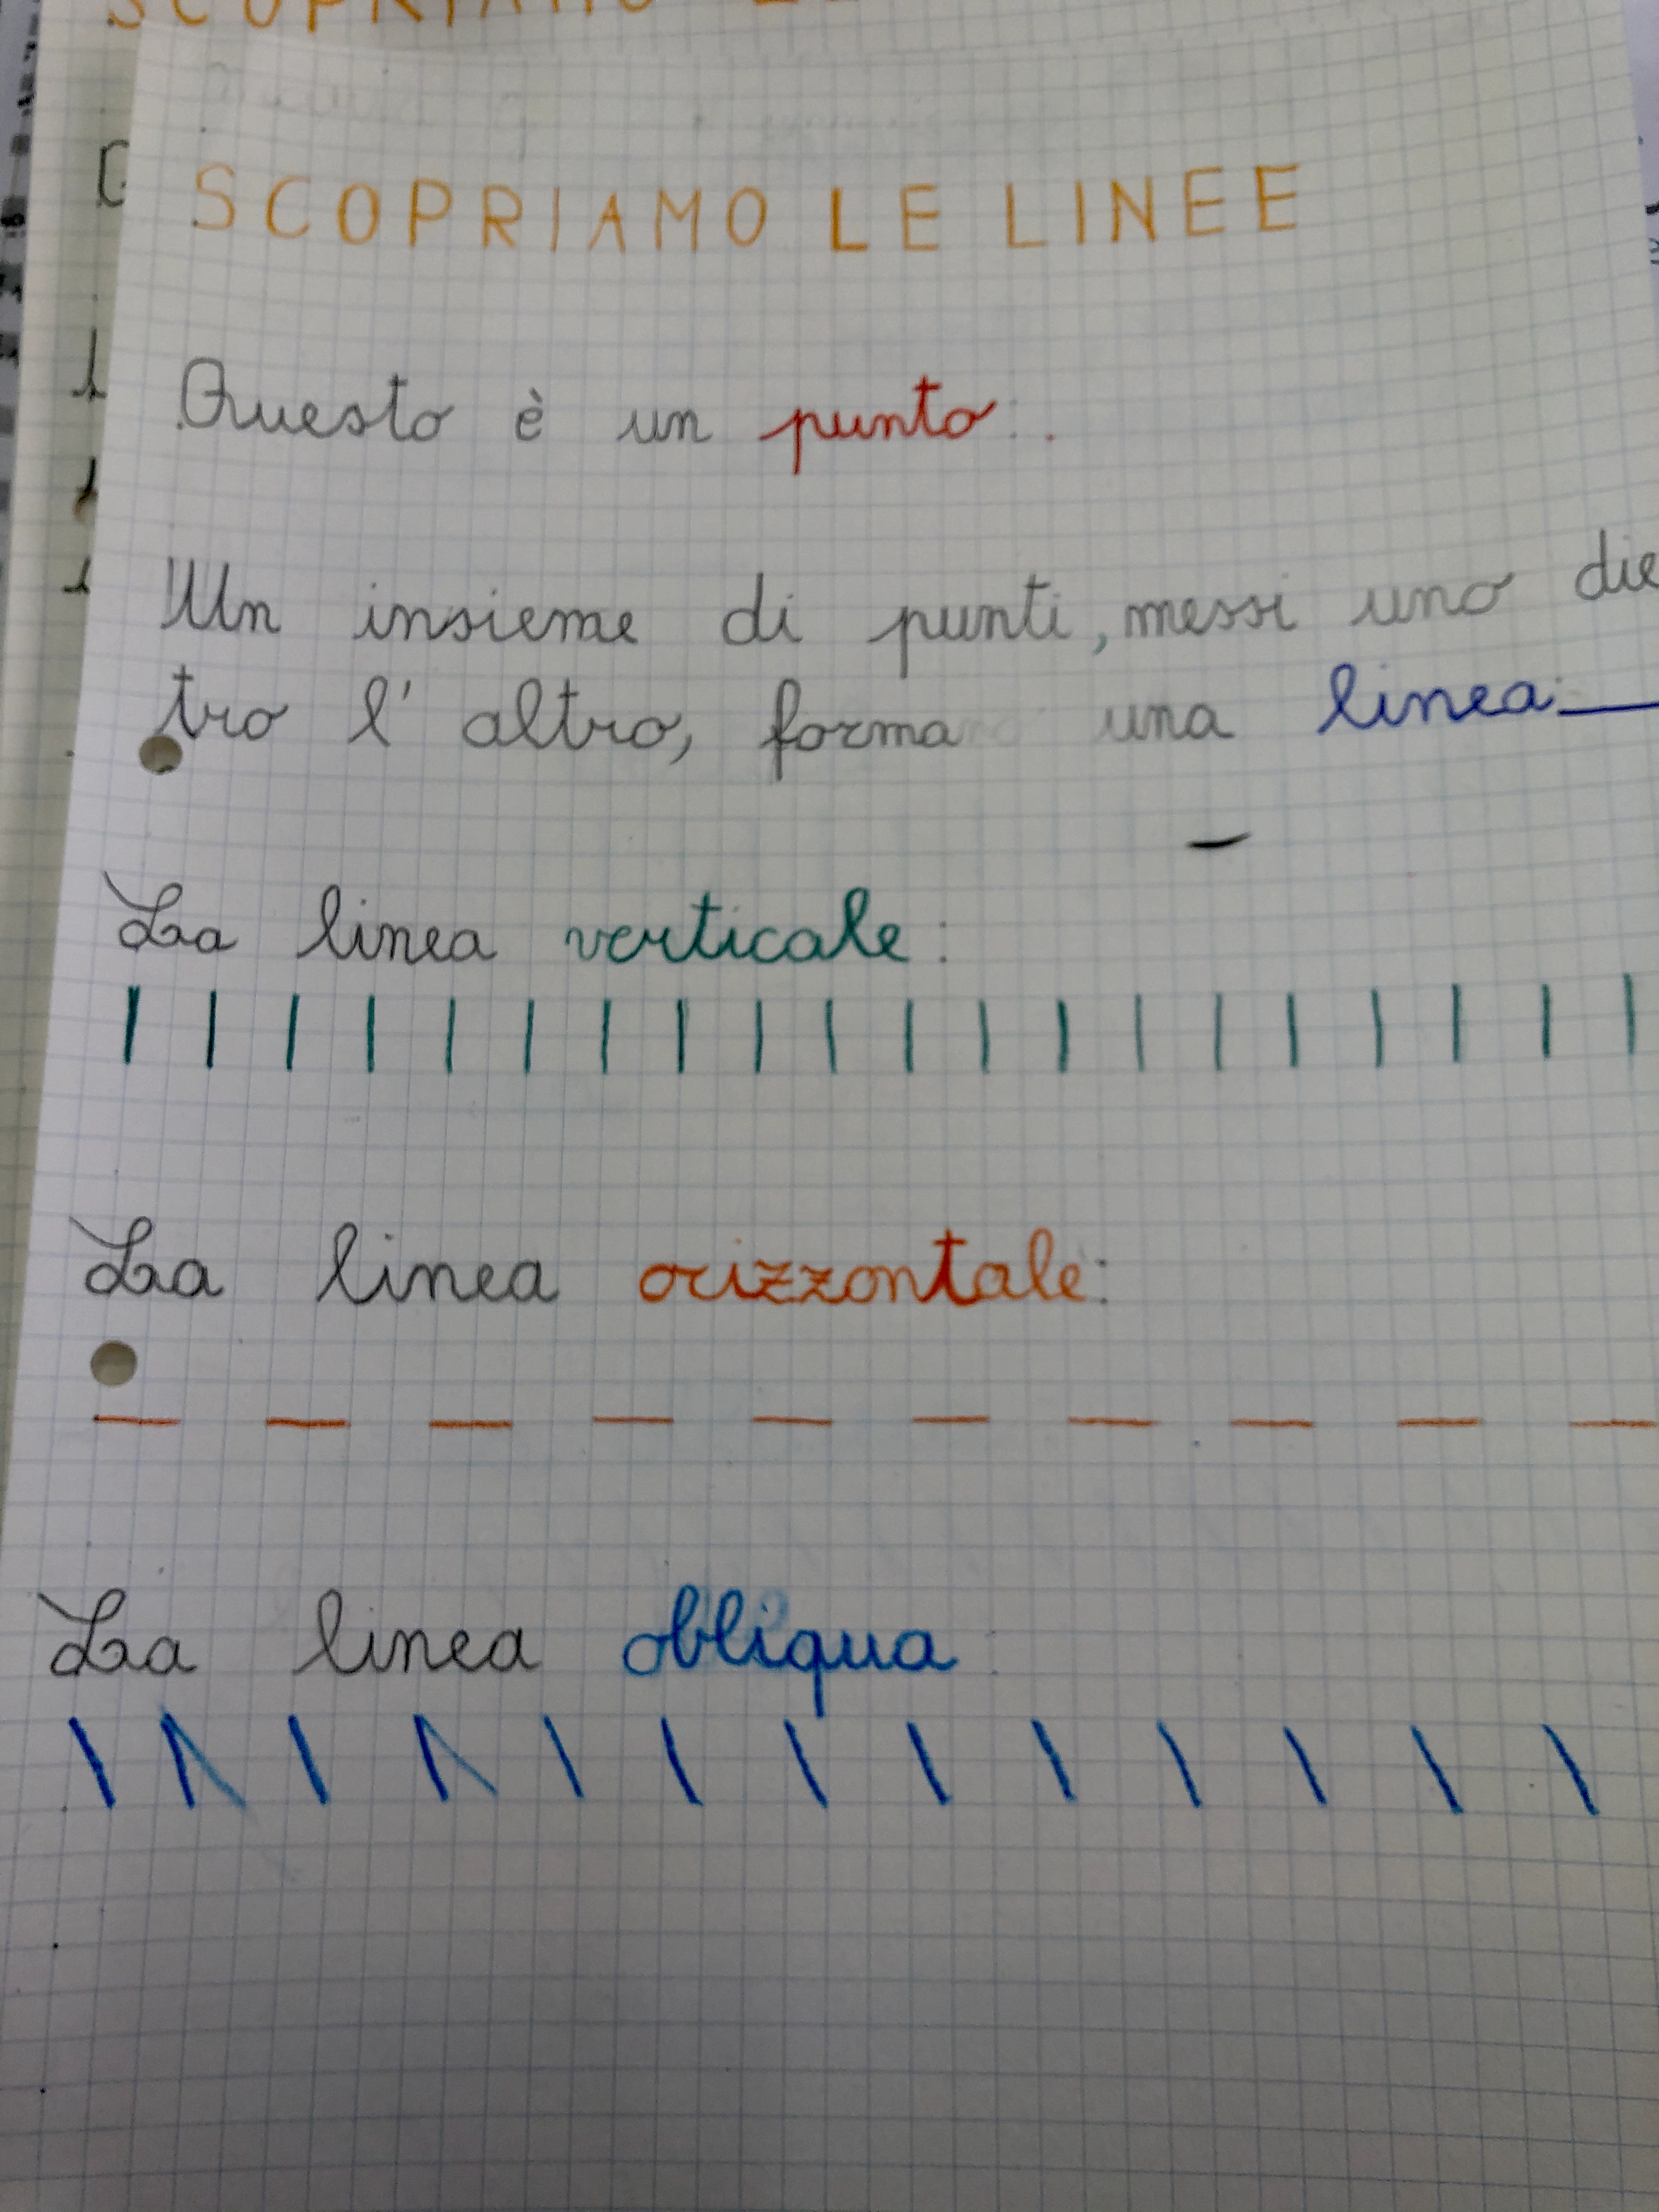 SCOPRIAMO LE
SCOPRIAMO LE LINEE
Questo è un punto: .
Un insieme di punti, messi uno die
tro l'altro, forma una linea:
La linea verticale:
La linea orizzontale:
La linea obliqua: